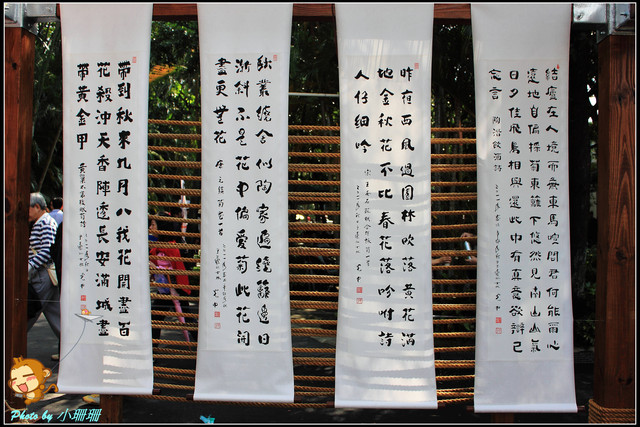 結廬在人境而無車馬喧問君何能爾心
遠地自偏採菊東籬下悠然見南山山氣
日夕佳飛鳥相與還此中有真意欲辯已
忘言
陶潛飲酒詩
昨夜西風過園林吹落黃花滿
地金秋花不比春花落吟唯詩
人仔細吟
秋叢繞舍似陶家遍繞籬邊日
漸斜不是花中偏愛菊此花開
盡更無花
帶到秋來九月八我花開盡百
花殺沖天香陣透長安滿城盡
帶黃金甲
Photo by 小珊珊